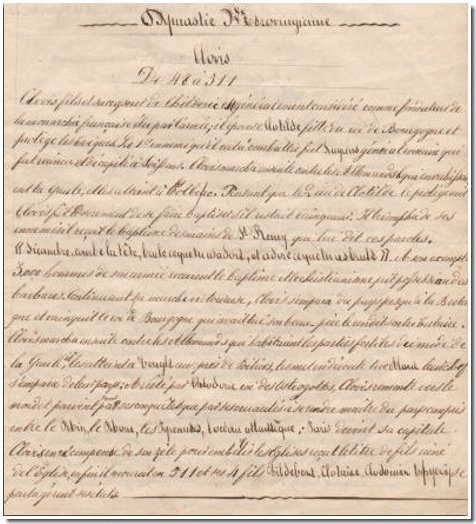 Dynastie Mérovingienne
Clovis
De 48 à 511
Clovis fils et successeur de Childéric est généralement considéré comme fondateur de
la monarchie française élu par l'armée, il épouse Clotilde fille du roi de Bourgogne et
protège les évêques. Le 1er ennemi qu'il eut à combattre fut Syagrius général romain qui
fut vaincu et décapité à Soissons. Clovis marcha ensuite contre les Allemands qui
ont la Gaule, et les atteint à Tolbiac. Pensant que le Dieu de Clotilde le protégeait
Clovis fit serment de se faire baptiser s'il restait vainqueur. Il triompha de ses
ennemis et reçut le baptême des mains de St Remy qui lui dit ces paroles.
Sicambre, la tête, brule ce que tu as adoré, et adore ce que tu as brulé. à son exemple
3.000 hommes de son armée reçurent le baptême et le christianisme prit possession des
barbares. Continuant sa marche victorieuse, Clovis s'empara du pays jusqu'à la
que et vainquit le roi de Bourgogne qui avait tué son beau-père le rendit son tributaire.
Clovis marcha ensuite contre les Allemands qui habitaient les parties fertiles du midi de
la Gaule, les atteint à Vouglé près de Poitiers, les met en déroute tue Alaric
s'empara de leur pays; arrêté par Théodoric roi des Ostrogoths, Clovis remonte vers le
nord et parvient par ses conquêtes que par ses cruautés à se rendre maître du pays compris
entre le Rhin, le Rhone, les Pyrénées, l'océan atlantique. Paris devint sa capitale
Clovis en récompense de son zèle pour embellir les Eglises reçut le titre de fils ainé
de l'Eglise, enfin il mourut en 511 et ses 4 fils Childebert, Clotaire, Clodomir Thierry se
partagèrent ses états.